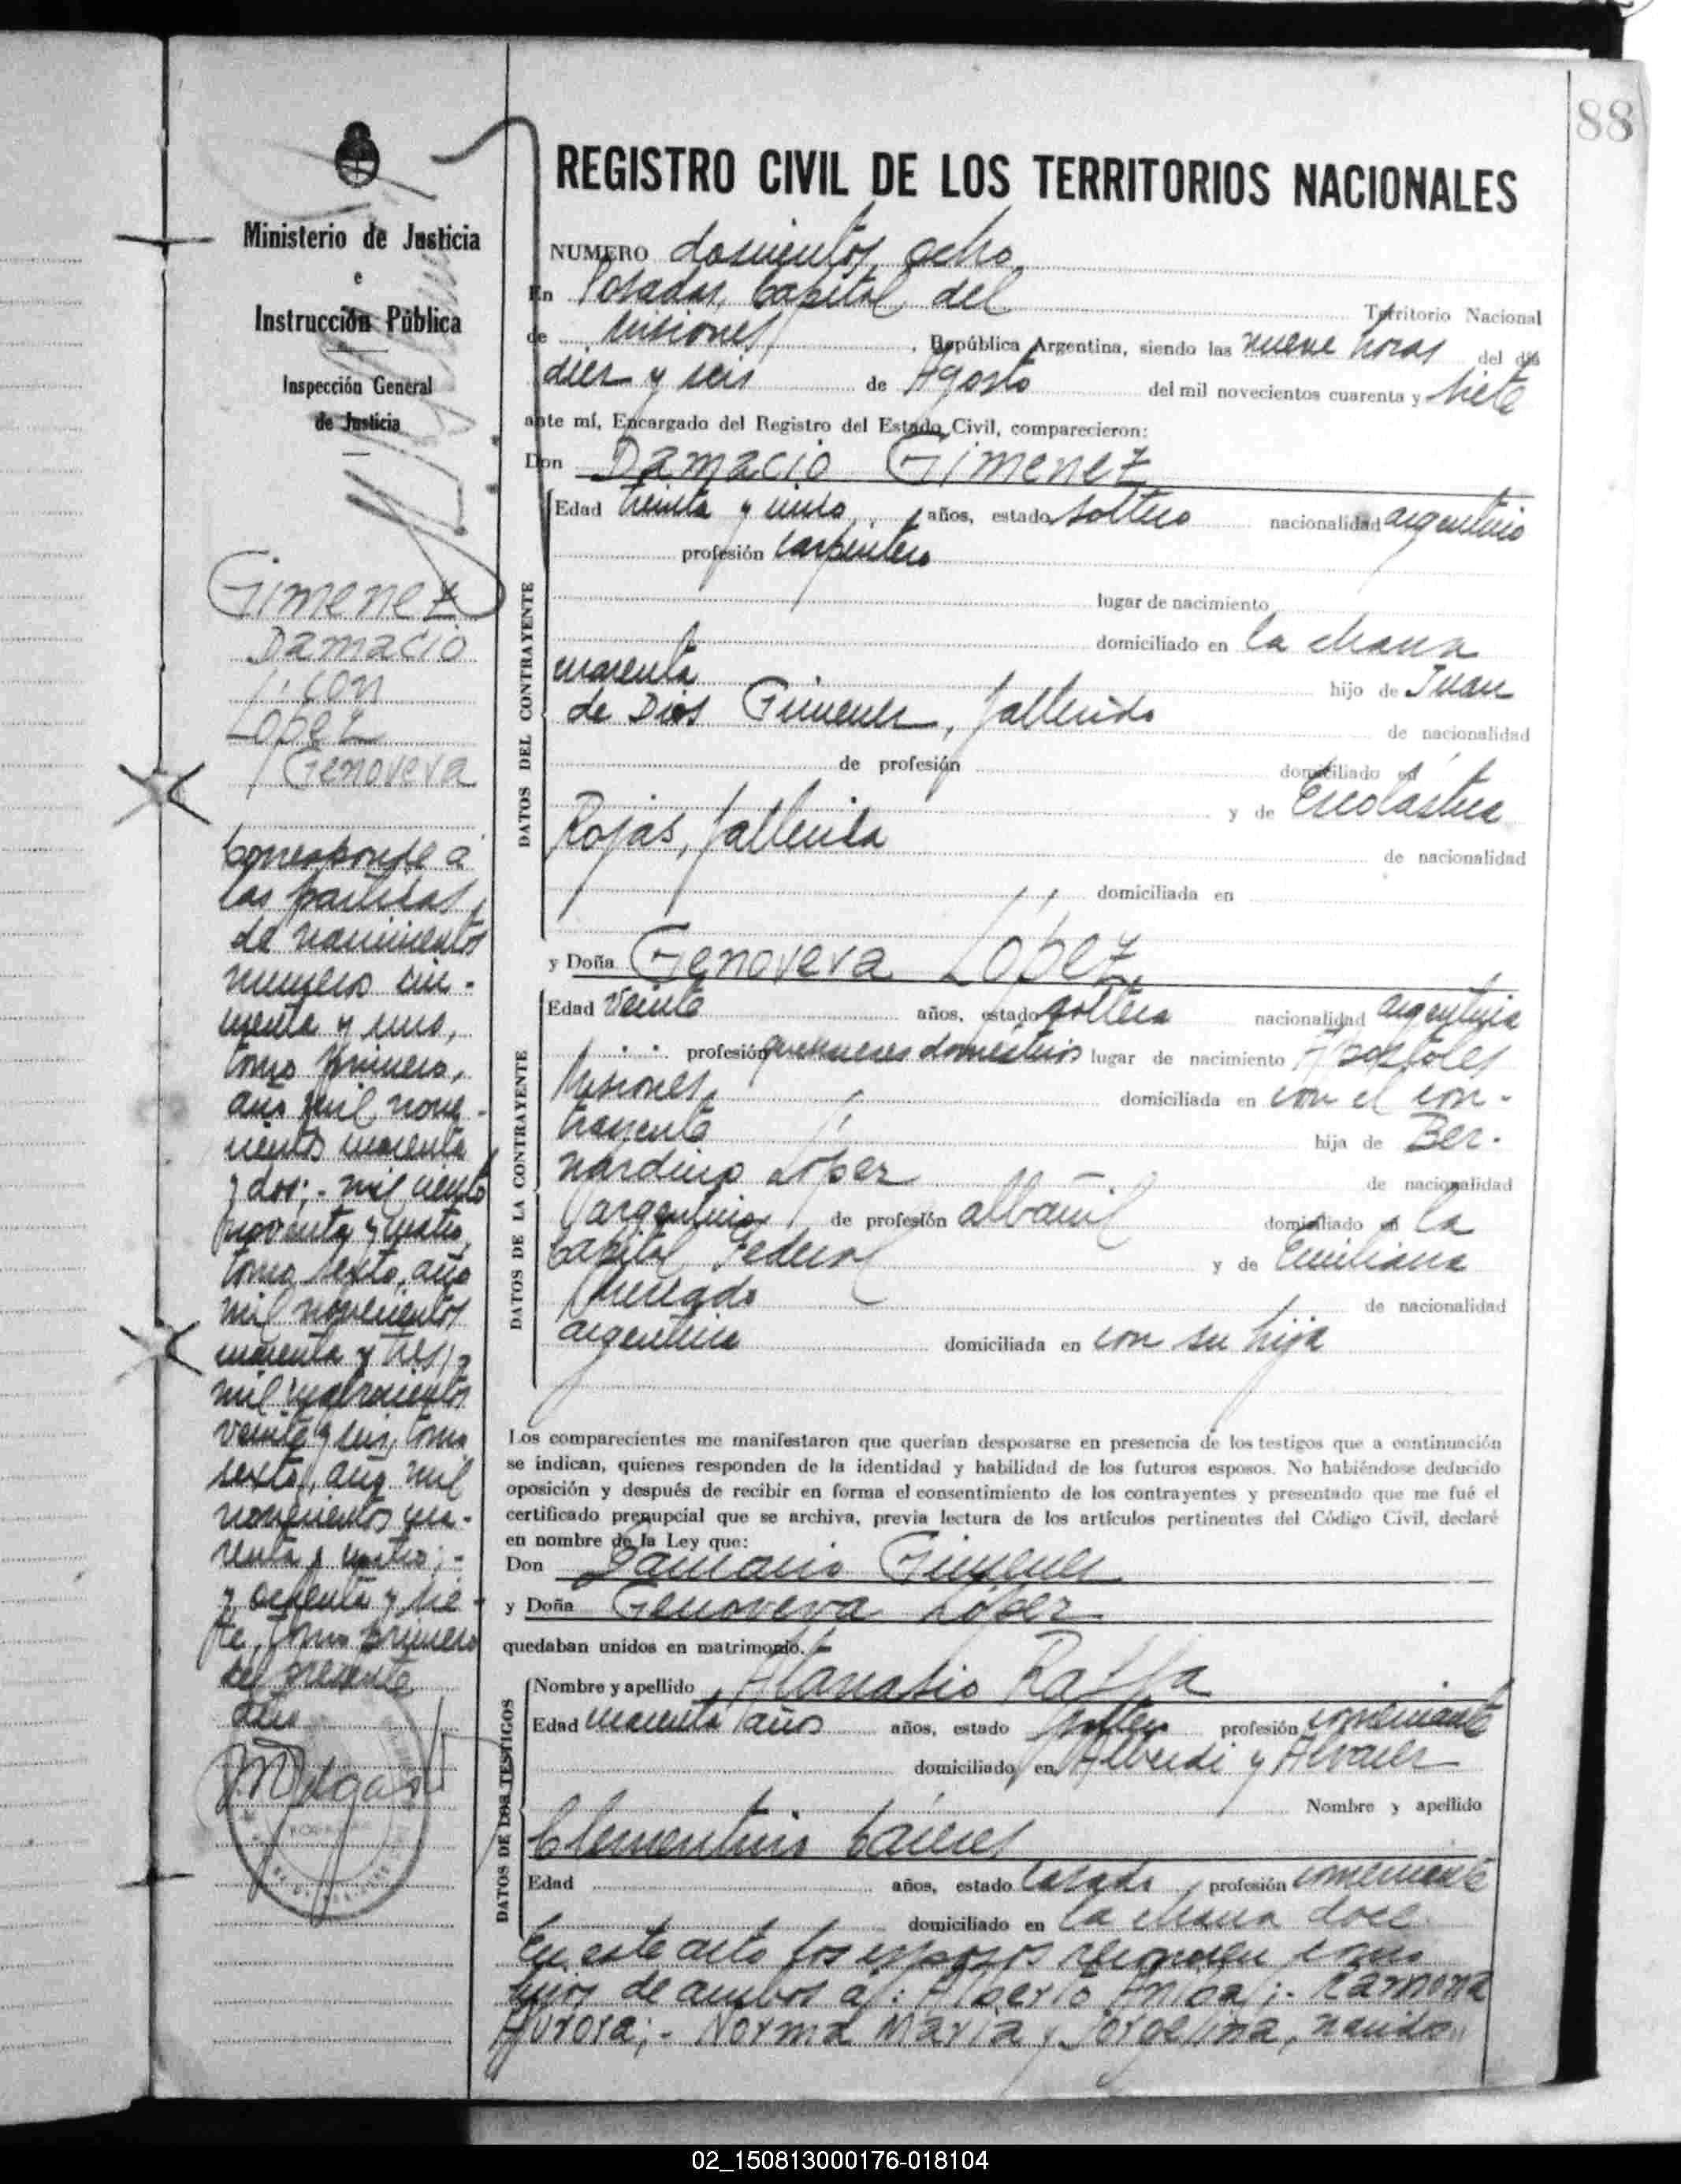 88
Ministerio de Justicia
e
Instrucción Pública
Inspección General
de Justicia
Gimenez
Damacio
con
Lopez
Genoveva
Corresponde a
las partidas
de nacimientos
numero cin-
cuenta y uno,
tomo primero,
año mil nove-
cientos cuarenta
y dos;- mil ciento
noventa y cuatro,
tomo sexto, año
mil novecientos
cuarenta y tres;-
mil cuatrocientos
veinte y seis, tomo
sexto, año mil
novecientos cua-
renta y cuatro;-
y ochenta y sie-
te, tomo primero
del presente
año
REGISTRO CIVIL DE LOS TERRITORIOS NACIONALES
NUMERO doscientos ocho
En Posadas, Capital del Territorio Nacional
de Misiones, República Argentina, siendo las nueve horas del día
diez y seis de Agosto del mil novecientos cuarenta y siete
ante mí, Encargado del Registro del Estado Civil, comparecieron:
Don Damacio Gimenez
DATOS DEL CONTRAYENTE
Edad treinta y uno años, estado soltero nacionalidad argentino
profesión carpintero
lugar de nacimiento
domiciliado en la chacra
cuarenta hijo de Juan
de Dios Gimenez, fallecido de nacionalidad
de profesión domiciliado en
y de Escolástica
Rojas, fallecida de nacionalidad
domiciliada en
y Doña Genoveva Lopez
DATOS DE LA CONTRAYENTE
Edad veinte años, estado soltera nacionalidad argentina
profesión quehaceres domesticos lugar de nacimiento Apostoles
Misiones domiciliada en con el con-
trayente hija de Ber-
nardino López de nacionalidad
argentino de profesión albañil domiciliado en la
Capital Federal y de Emiliana
de nacionalidad
argentina domiciliada en con su hija
Los comparecientes me manifestaron que querían desposarse en presencia de los testigos que a continuación
se indican, quienes responden de la identidad y habilidad de los futuros esposos. No habiéndose deducido
oposición y después de recibir en forma el consentimiento de los contrayentes y presentado que me fué el
certificado prenupcial que se archiva, previa lectura de los artículos pertinentes del Código Civil, declaré
en nombre de la Ley que:
Don Damacio Gimenez
y Doña Genoveva López
quedaban unidos en matrimonio.
DATOS DE LOS TESTIGOS
Nombre y apellido Atanasio
Edad cuarenta años años, estado soltero profesión comerciante
domiciliado en Alberdi y Alvarez
Nombre y apellido
Clementino
Edad años, estado casado profesión comerciante
domiciliado en la chacra doce
En este acto los esposos reconocen como
hijos de ambos a: Alberto Anibal;- Ramona
Aurora;- Norma Maria y Jorgelina, nacidos
02_150813000176-018104